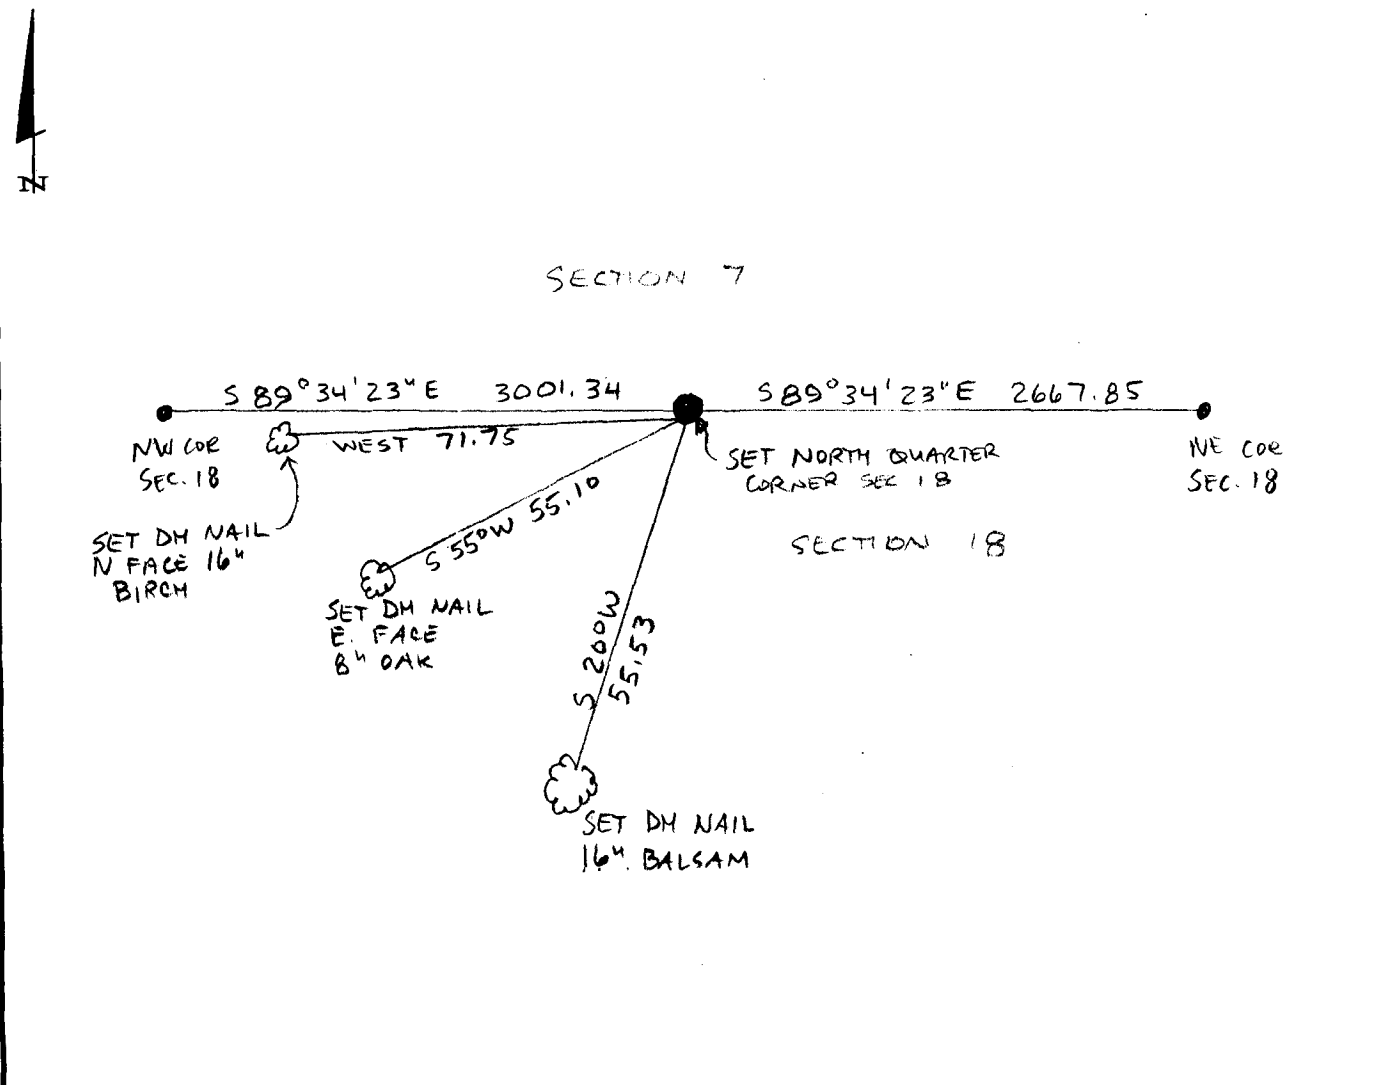 N
SECTION 7
S 89°34'23"E 3001.34
S 89°34'23"E 2667.85
NW COR
SEC. 18
WEST 71.75
SET NORTH QUARTER
CORNER SEC 18
NE COR
SEC. 18
SET DH NAIL
N FACE 16"
BIRCH
S 55°W 55.10
SECTION 18
SET DH NAIL
E. FACE
8" OAK
S 20°W
55.53
SET DH NAIL
16". BALSAM